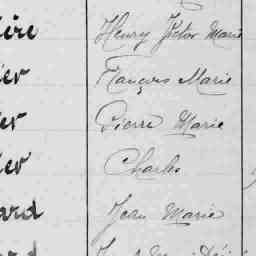 ire Henry Victor Marie
ier François Marie
er Pierre Marie
ier Charles
ard Jean Marie
ard